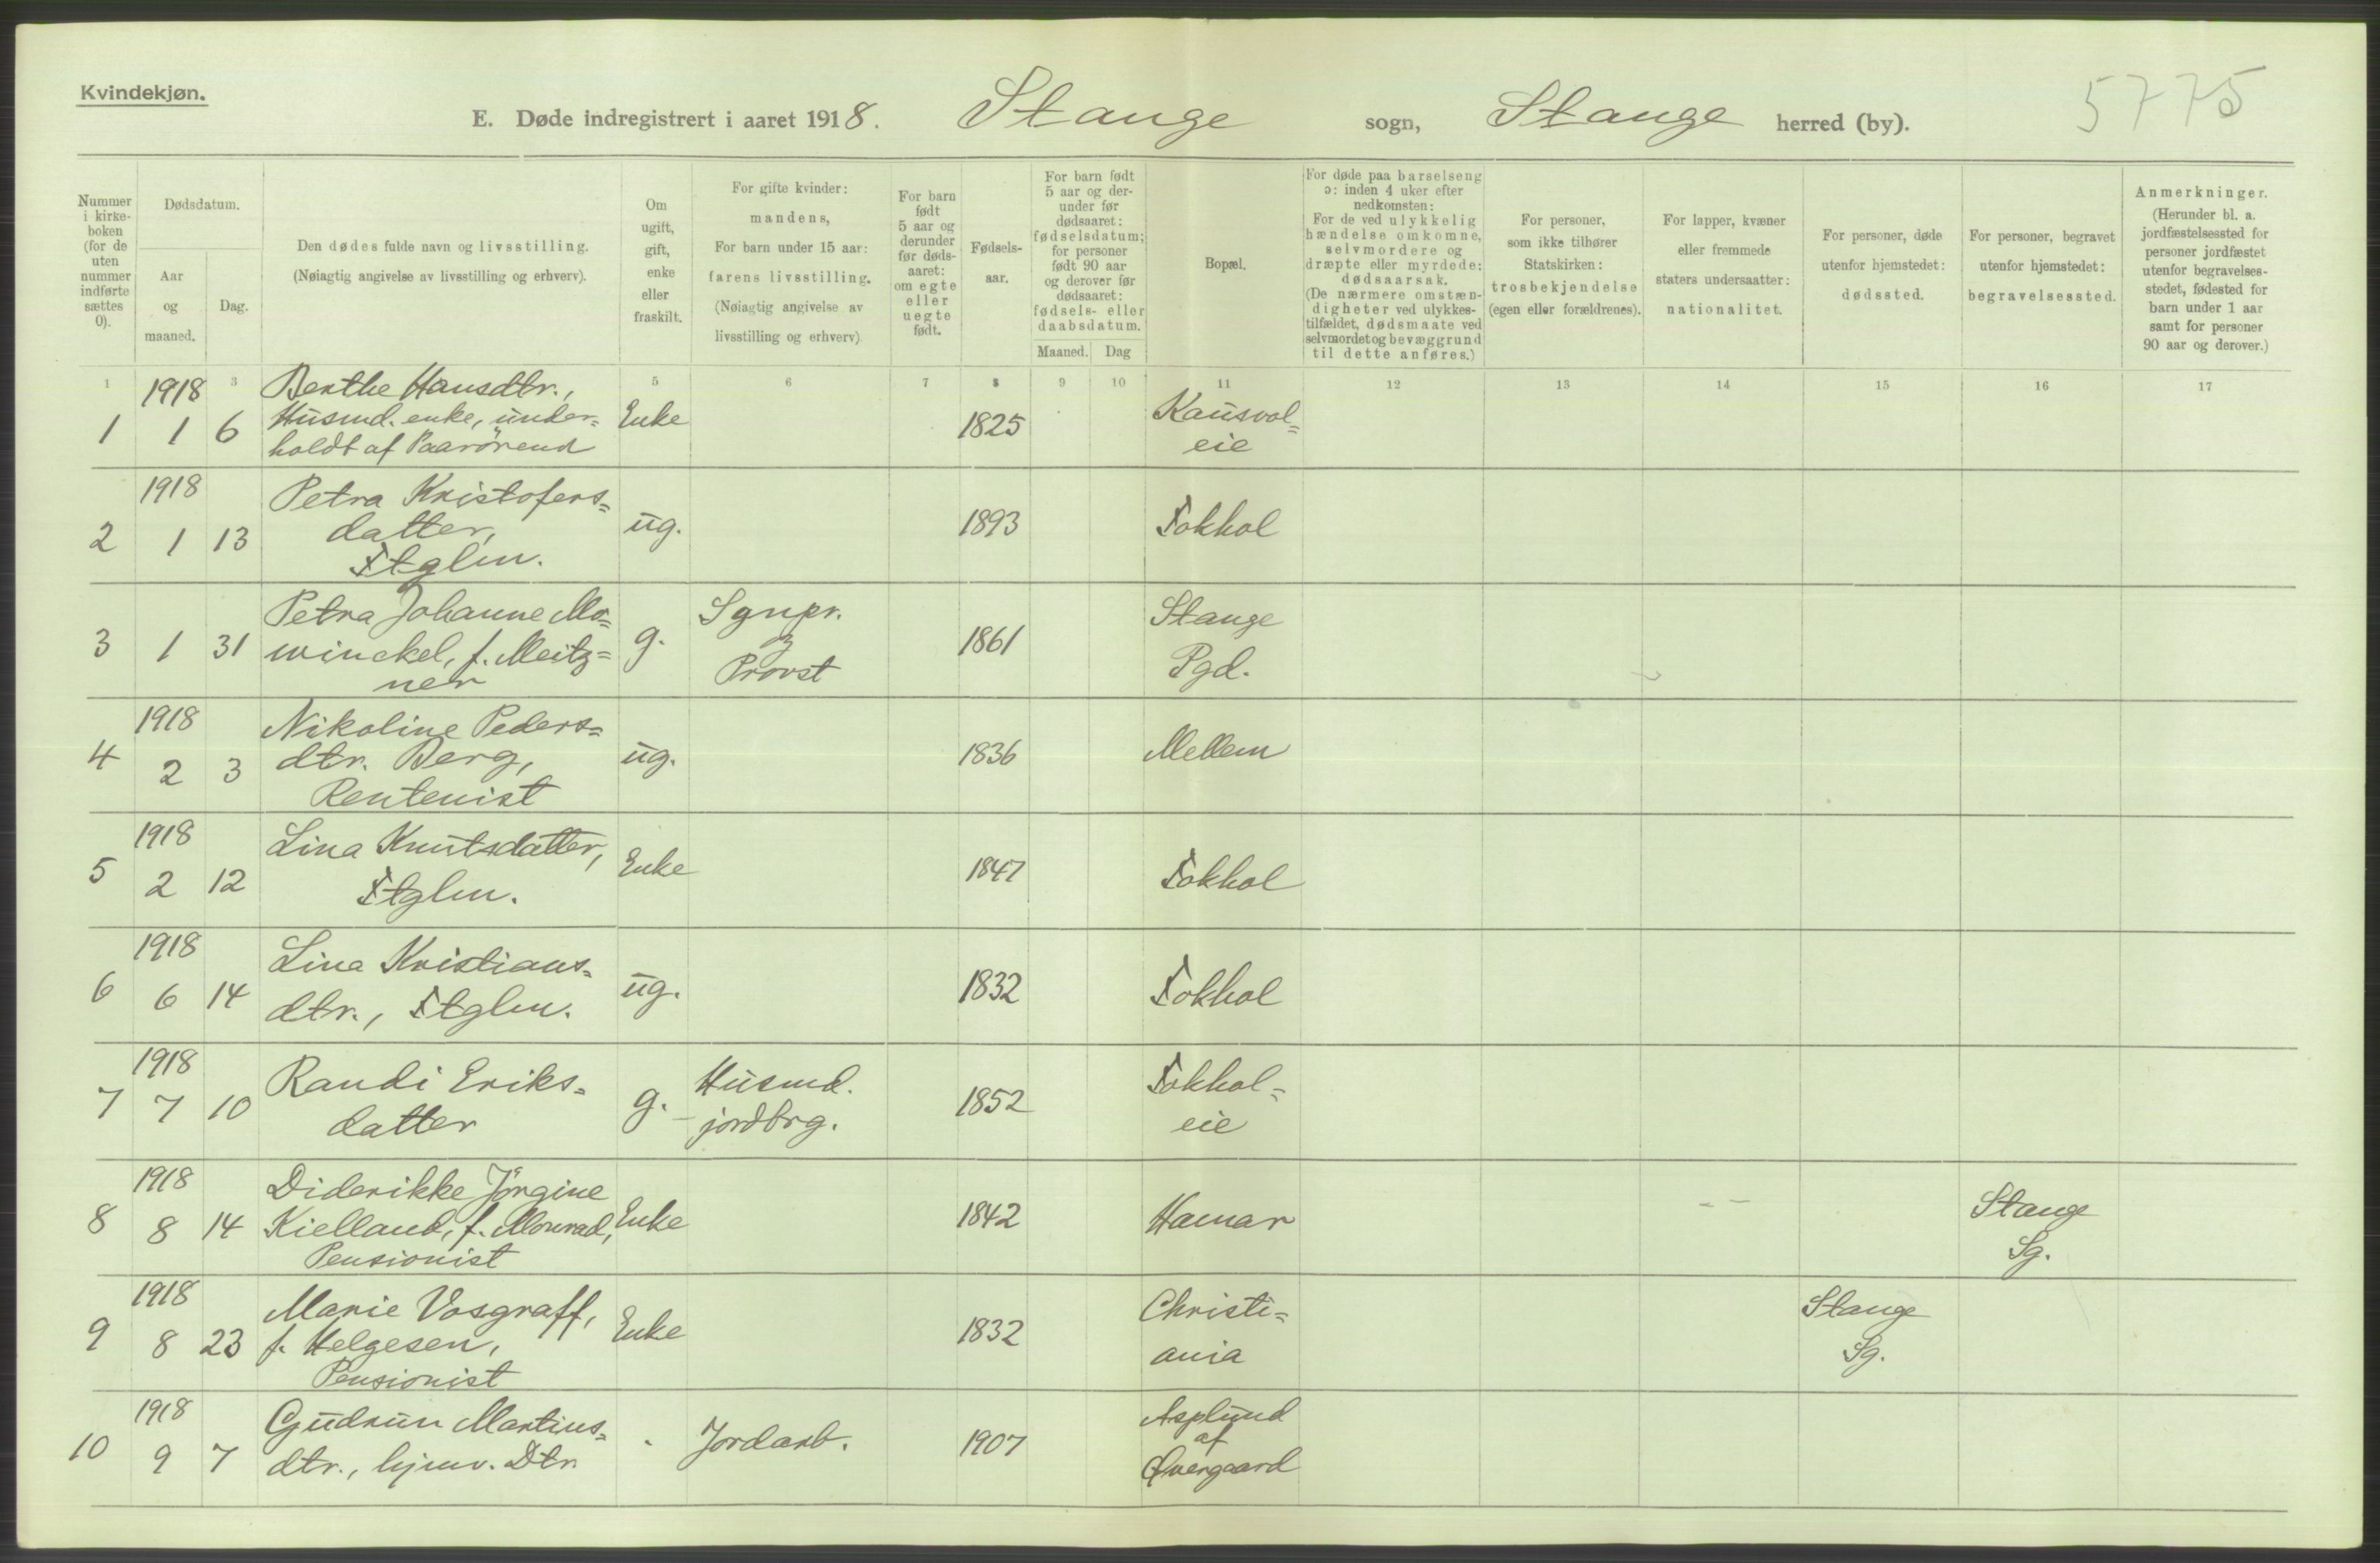 Kvindekjøn.
E. Døde indregistrert i aaret 1918. Stange sogn, Stange herred (by).
5775
Nummer i kirke-boken (for de uten nummer indførte sættes 0).
Dødsdatum.
Aar og maaned.
Dag.
Den dødes fulde navn og livsstilling.
(Nøiagtig angivelse av livsstilling og erhverv).
Om ugift, gift, enke eller fraskilt.
For gifte kvinder: mandens, For barn under 15 aar: farens livsstilling. (Nøiagtig angivelse av livsstilling og erhverv)
For barn født 5 aar og derunder før døds-aaret: om egte eller uegte født.
Fødsels-aar.
For barn født 5 aar og der-under før dødsaaret: fødselsdatum; for personer født 90 aar og derover før dødsaaret: fødsels- eller daabsdatum.
Maaned. Dag
Bopæl.
For døde paa barselseng ɔ: inden 4 uker efter nedkomsten: For de ved ulykkelig hændelse omkomne, selvmordere og dræpte eller myrdede: dødsaarsak. (De nærmere omstæn-digheter ved ulykkes-tilfældet, dødsmaate ved selvmordet og bevæggrund til dette anføres.)
For personer, som ikke tilhører Statskirken: trosbekjendelse (egen eller forældrenes).
For lapper, kvæner eller fremmede staters undersaatter: nationalitet.
For personer, døde utenfor hjemstedet: dødssted.
For personer, begravet utenfor hjemstedet: begravelsessted.
Anmerkninger. (Herunder bl. a. jordfæstelsessted for personer jordfæstet utenfor begravelses-stedet, fødested for barn under 1 aar samt for personer 90 aar og derover.)
1 3 5 6 7 8 9 10 11 12 13 14 15 16 17
1918 Berthe Hansdtr.,
1 1 6 Husmd. enke, under= Enke 1825 Kausvol=
holdt af Paarørend eie
1918 Petra Kristofers=
2 1 13 datter, ug. 1893 Fokhol
Ftglm.
Petra Johanne Mo= Sgnpr. Stange
3 1 31 winckel, f. Meitz= g. 3 1861
ner Provst Pgd.
1918 Nikoline Peders=
4 2 3 dtr. Berg, ug. 1836 Mellem
Rentenist
1918 Lina Knutsdatter,
5 2 12 Ftglm. Enke 1847 Fokhol
1918 Lina Kristians=
6 6 14 dtr., Ftglm. ug. 1832 Fokhol
1918 Randi Eriks= Husmd. Fokhol=
7 7 10 datter g. jordbrg. 1852 eie
1918 Diderikke Jörgine
8 8 14 Kielland, f. Monrad, Enke 1842 Hamar Stange
Pensionist Sg.
1918 Marie Vosgraff, Christi= Stange
9 8 23 f. Helgesen, Enke 1832 ania Sg.
Pensionist
1918 Gudrun Martins= Asplund
10 9 7 dtr., hjmv. Dtr. . Jordarb. 1907 af
Øvergaard